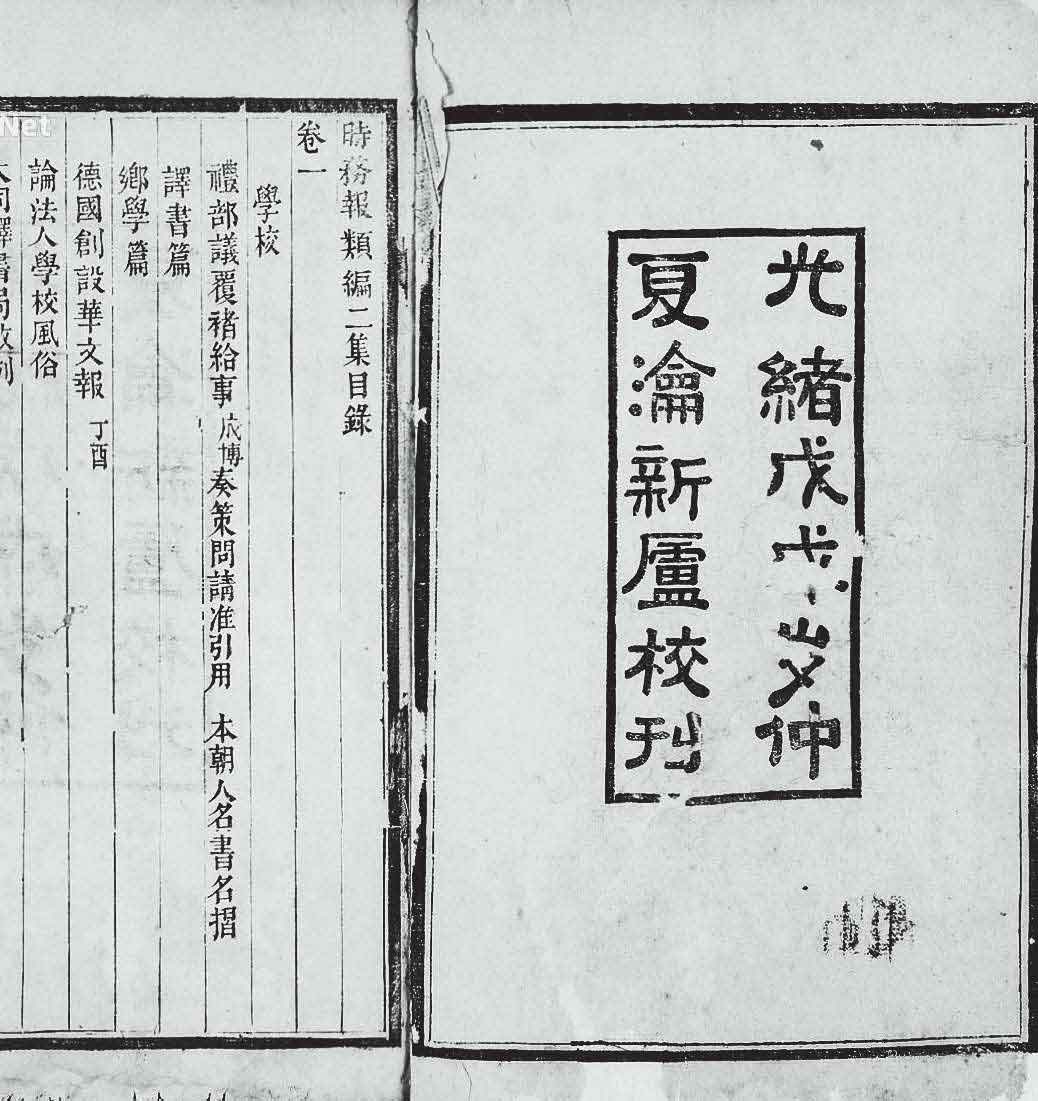 光緒戊戌歲仲
夏瀹新廬校刊
時務報類編二集目錄
卷一
學校
禮部議覆褚給事成博奏策問請准引用 本朝人名書名摺
譯書篇
鄉學篇
德國創設華文報 丁酉
論法人學校風俗
大同譯書局敘例
Net